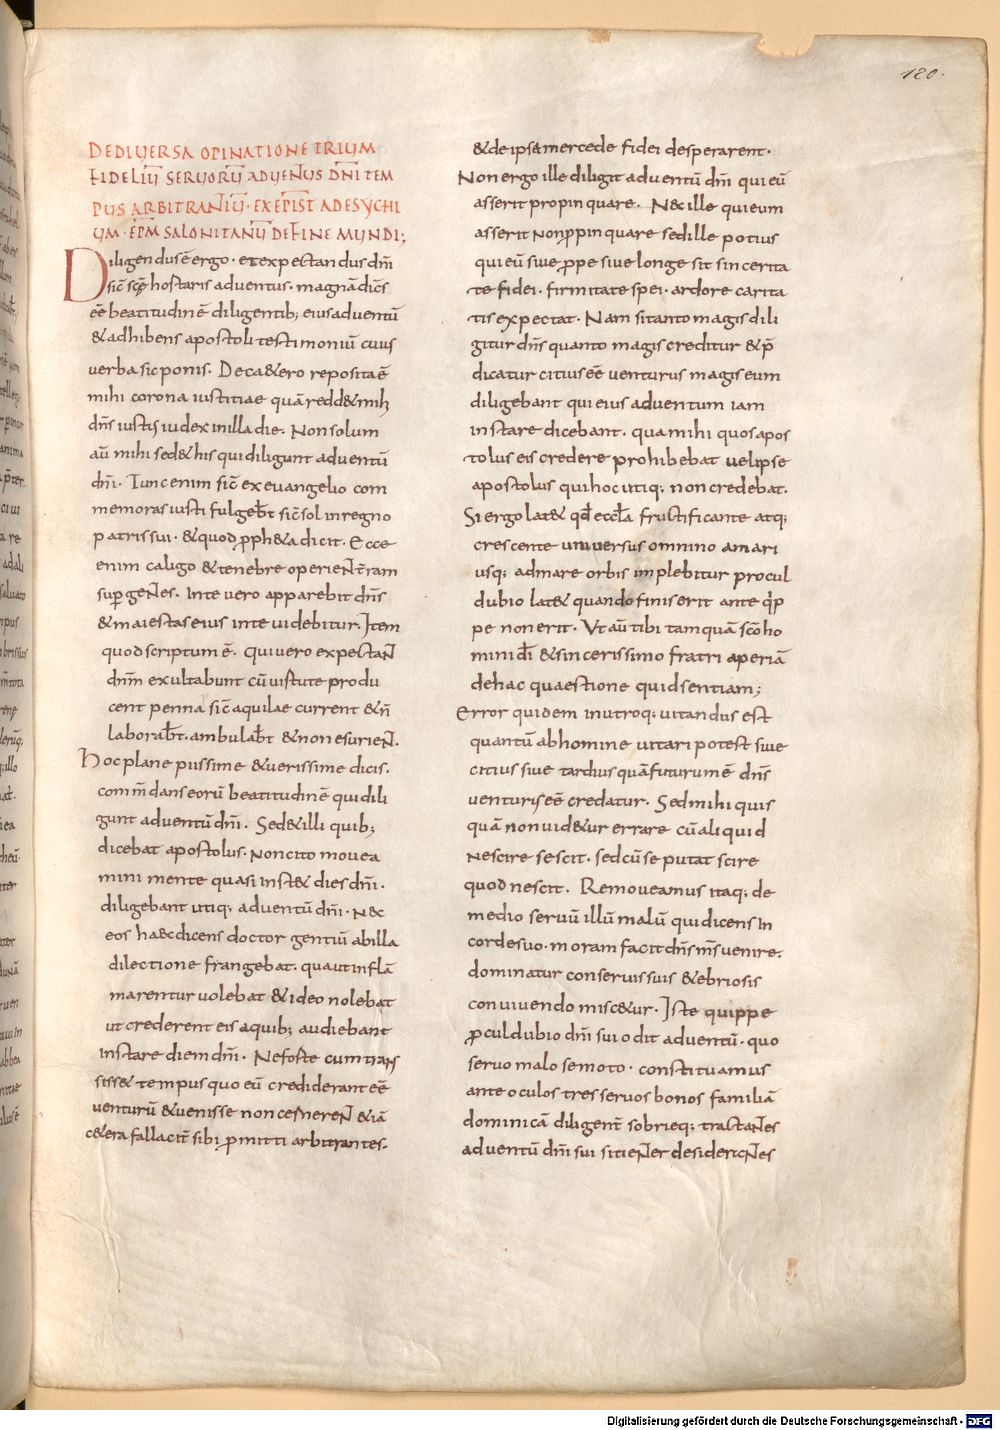 120.
DEDIUERSA OPINATIONE TRIUM
FIDELIŪ SERUORŪ ADUENTUS DN̄I TEM
PUS ARBITRANTIŪ · EX EPIST̄ AD ESYCHI
UM · EP̄M SALONITANŪ DE FINE MUNDI;
Diligendus ē ergo · et expectandus dn̄i
sic̄ sc̄ę hostaris aduentus · magnā dic̄s
eē beatitudinē diligentib; eius aduentū
& adhibens apostoli testimoniū cuius
uerba sic ponis. De cæ&ero reposita ē
mihi corona iustitiae quā redd& mihi
dn̄s iustis iudex in illa die. Non solum
aū mihi sed & his qui diligunt aduentū
dn̄i. Tunc enim sic̄ ex euangelio com
memoras iusti fulgeb̄t sic̄ sol in regno
patris sui · & quod ꝓph&a dicit. Ecce
enim caligo & tenebre operient t̄ram
sup gentes. In te uero apparebit dn̄s
& maiestas eius in te uidebitur. Item
quod scriptum ē. qui uero expectant
dn̄m exultabunt cū uistute produ
cent penna sic̄ aquilae current & n̄
laborab̄t. ambulab̄t & non esurient.
hoc plane piissime & uerissime dicis.
com̄mdans eorū beatitudinē qui dili
gunt aduentū dn̄i. Sed & illi quib;
dicebat apostolus. Non cito mouea
mini mente quasi inst& dies dn̄i.
diligebant utiq; aduentū dn̄i. N&c
eos hæc dicens doctor gentiū ab illa
dilectione frangebat. qua ut inflā
marentur uolebat & ideo nolebat
ut crederent eis a quib; audiebant
instare diem dn̄i. Ne forte cum trans
siss& tempus quo eū crediderant eē
uenturū & uenisse non cernerent & iā
c&era fallacit̄ sibi ꝓmitti arbitrantes.
& de ipsa mercede fidei desperarent.
Non ergo ille diligit aduentū dn̄i qui eū
asserit propinquare. N& ille qui eum
asserit non ꝓpinquare sed ille potius
qui eū siue ꝓpe siue longe sit sincerita
te fidei. firmitate spei. ardore carita
tis expectat. Nam si tanto magis dili
gitur dn̄s quanto magis creditur & p̄
dicatur citius eē uenturus magis eum
diligebant qui eius aduentum iam
instare dicebant. qua mihi quos apos
tolus eis credere prohibebat uel ipse
apostolus qui hoc utiq; non credebat.
Si ergo lat& qd̄ eccl̄a fructificante atq;
crescente uniuersus omnino a mari
usq; ad mare orbis implebitur procul
dubio lat& quando finis erit ante q̄ p
pe non erit. Vt aū tibi tamquā sc̄o ho
mini di & sincerissimo fratri aperiā
de hac quaestione quid sentiam;
Error quidem in utroq; uitandus est
quantū ab homine uitari potest siue
citius siue tardius quā futurum ē dn̄s
uenturis eē credatur. Sed mihi quis
quā non uid&ur errare cū aliquid
nescire se scit. sed cū se putat scire
quod nescit. Remoueamus itaq; de
medio seruū illū malū qui dicens in
corde suo. moram facit dn̄s m̄s uenire.
dominatur conseruis suis & ebriosis
conuiuendo misc&ur. Iste quippe
ꝓcul dubio dn̄i sui odit aduentū. quo
seruo malo semoto. constituamus
ante oculos tres seruos bonos familiā
dominicā diligent̄ sobrieq; tractantes
aduentū dn̄i sui sitienter desiderantes
Digitalisierung gefördert durch die Deutsche Forschungsgemeinschaft - DFG